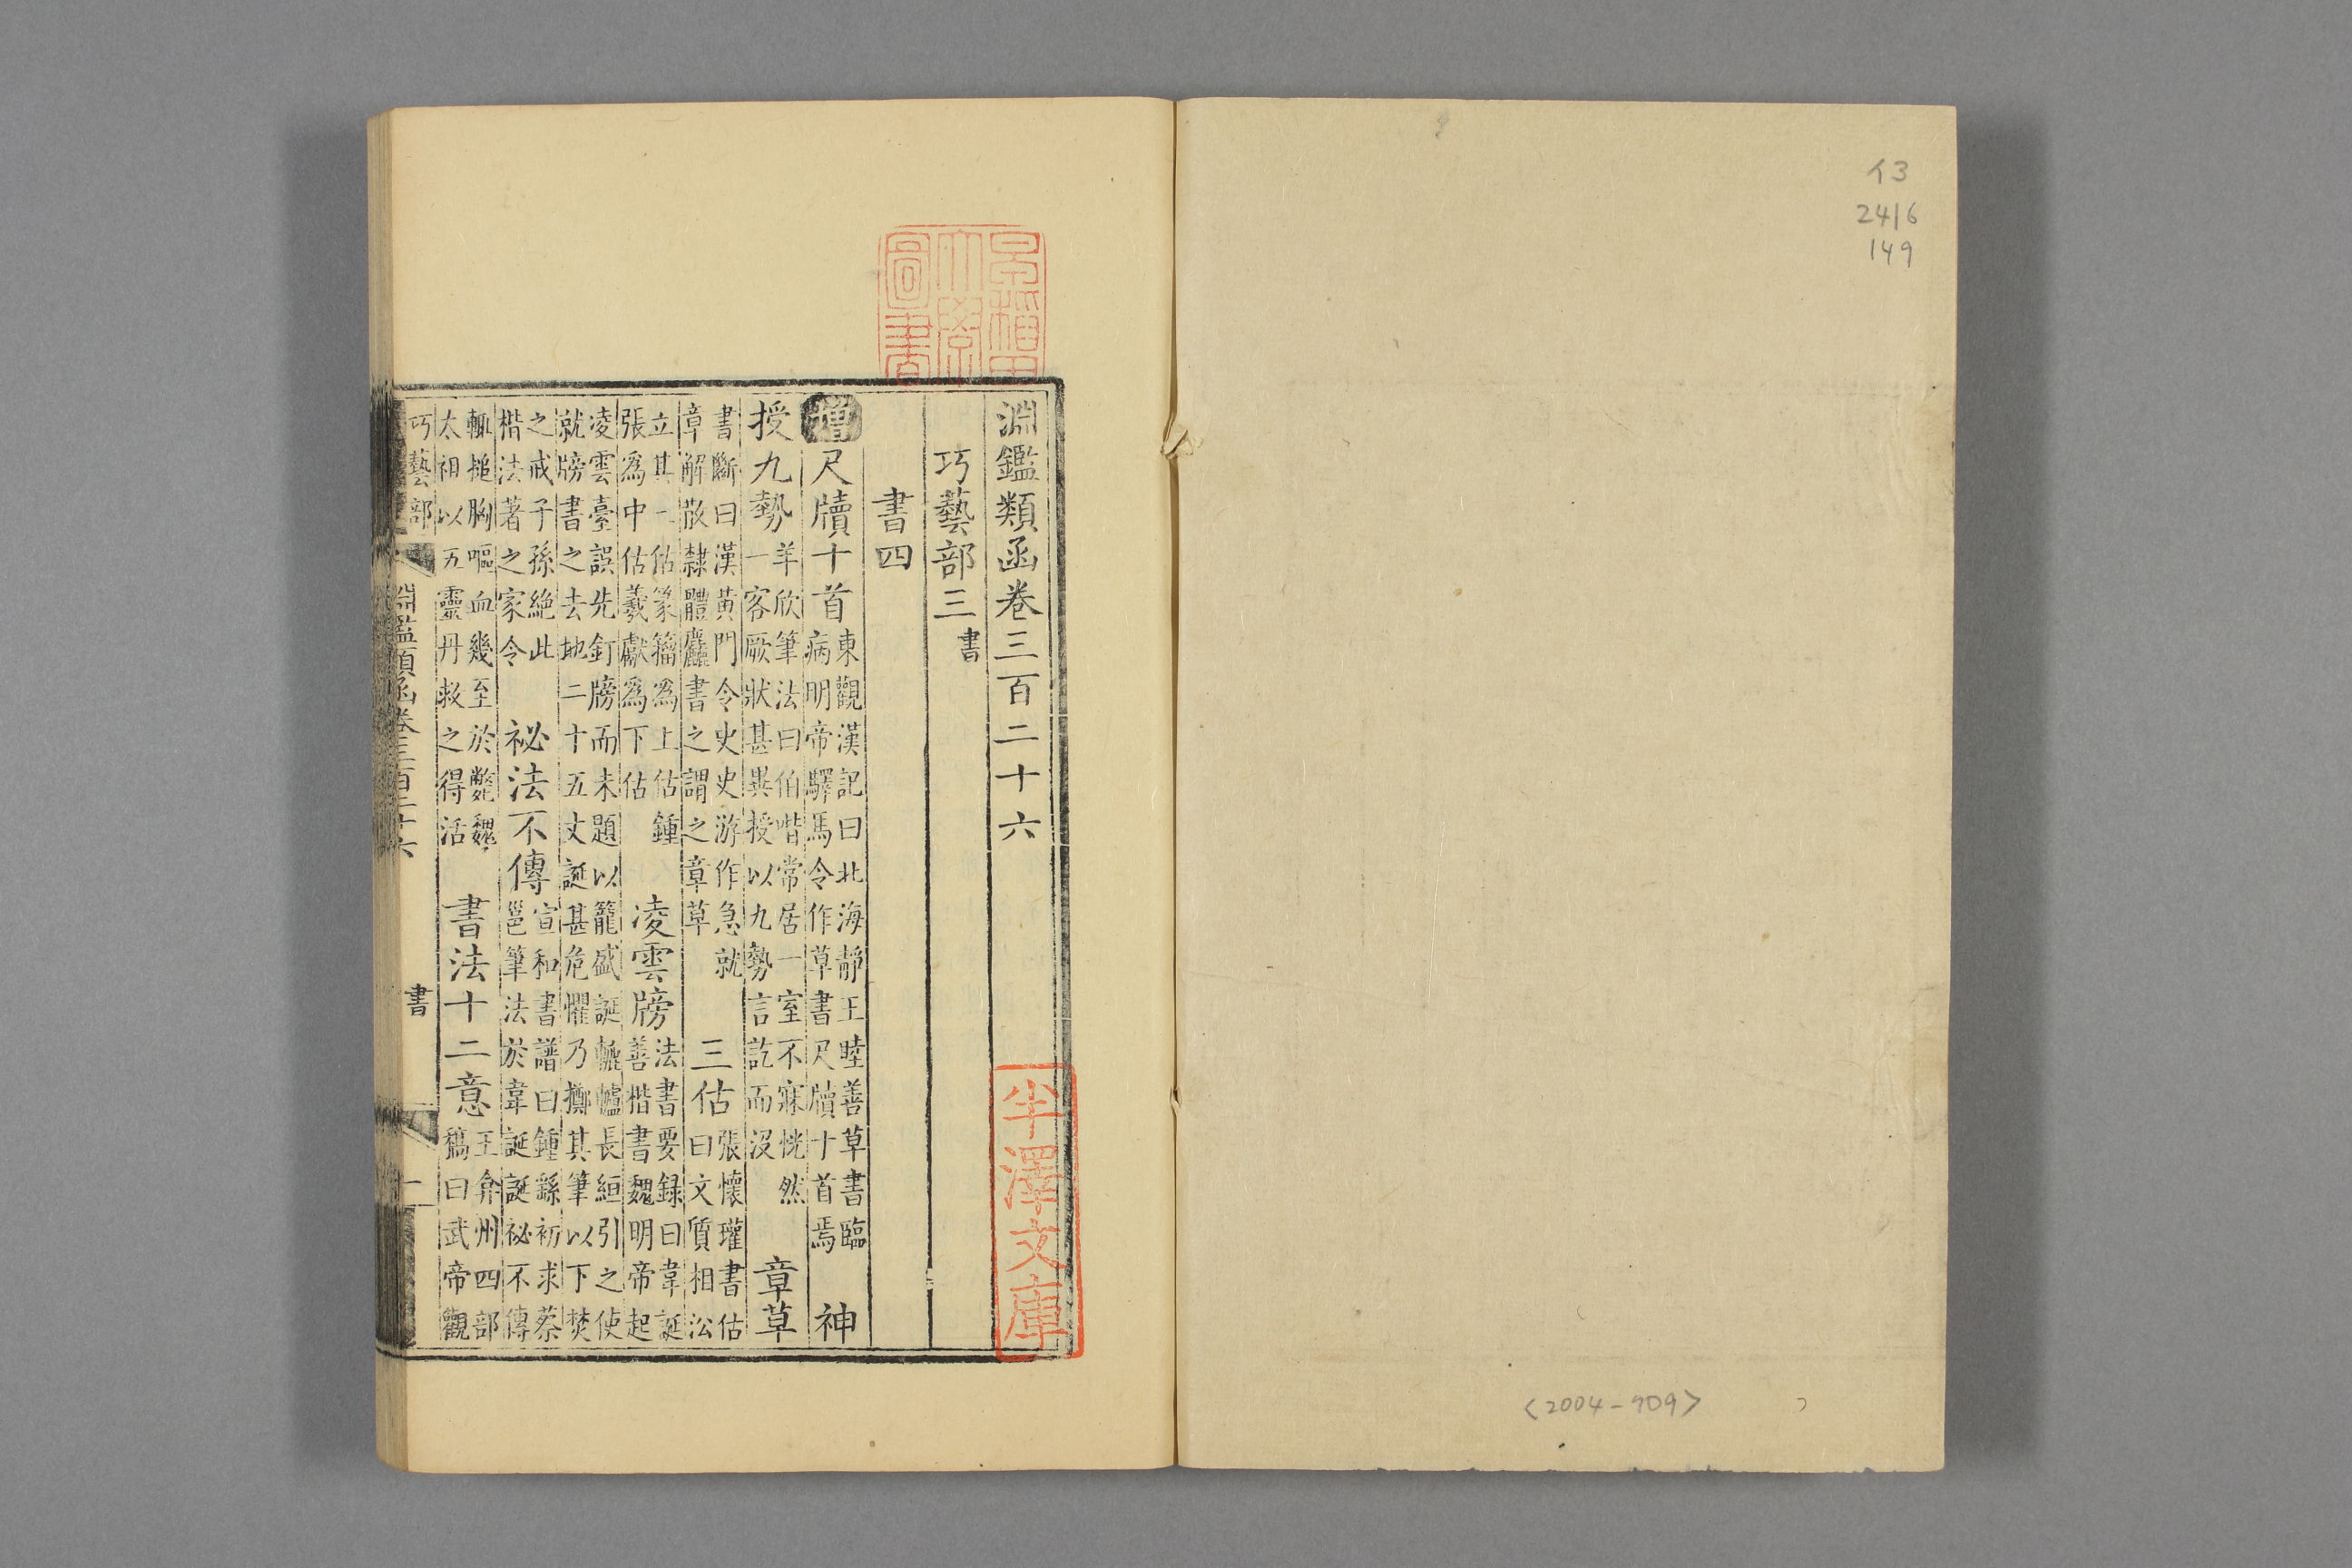 イ3
2416
149
<2004-909>
早稻田
大學
圖書
淵鑑類函卷三百二十六
巧藝部三書
書四
增尺牘十首東觀漢記曰北海靜王睦善草書臨
病明帝驛馬令作草書尺牘十首焉神
授九勢羊欣筆法曰伯喈常居一室不寐恍然
一客厥狀甚異授以九勢言訖而沒章草
書斷曰漢黃門令史史游作急就
章解散隸體麤書之謂之章草三估張懷瓘書估
曰文質相沿
立其一估篆籀爲上估鍾
張爲中估羲獻爲下估凌雲牓法書要録曰韋誕
善楷書魏明帝起
凌雲臺誤先釘牓而未題以籠盛誕轆轤長絙引之使
就牓書之去地二十五丈誕甚危懼乃擲其筆以下焚
之戒子孫絶此
楷法著之家令祕法不傳宣和書譜曰鍾繇初求蔡
邕筆法於韋誕誕祕不傳
輙搥胸嘔血幾至於斃魏
太祖以五靈丹救之得活書法十二意王弇州四部
稿曰武帝觀
巧藝部
淵鑑類函卷三百二十六
書
一
半澤文庫